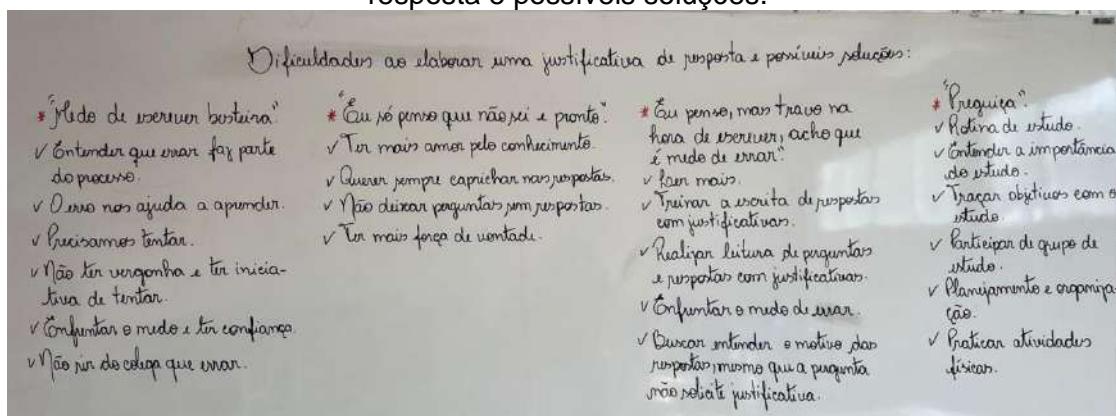 resposta e possíveis soluções.
Dificuldades ao elaborar uma justificativa de resposta e possíveis soluções:
* "Medo de escrever besteira".
✓ Entender que errar faz parte
do processo.
✓ O erro nos ajuda a aprender.
✓ Precisamos tentar.
✓ Não ter vergonha e ter inicia-
tiva de tentar.
✓ Enfrentar o medo e ter confiança.
✓ Não rir do colega que errar.
* "Eu só penso que não sei e pronto".
✓ Ter mais amor pelo conhecimento.
✓ Querer sempre caprichar nas respostas.
✓ Não deixar perguntas sem respostas.
✓ Ter mais força de vontade.
* "Eu penso, mas travo na
hora de escrever, acho que
é medo de errar".
✓ Ler mais.
✓ Treinar a escrita de respostas
com justificativas.
✓ Realizar leitura de perguntas
e respostas com justificativas.
✓ Enfrentar o medo de errar.
✓ Buscar entender o motivo das
respostas, mesmo que a pergunta
não solicite justificativa.
* "Preguiça".
✓ Rotina de estudo.
✓ Entender a importância
do estudo.
✓ Traçar objetivos com o
estudo.
✓ Participar de grupo de
estudo.
✓ Planejamento e organiza-
ção.
✓ Praticar atividades
físicas.